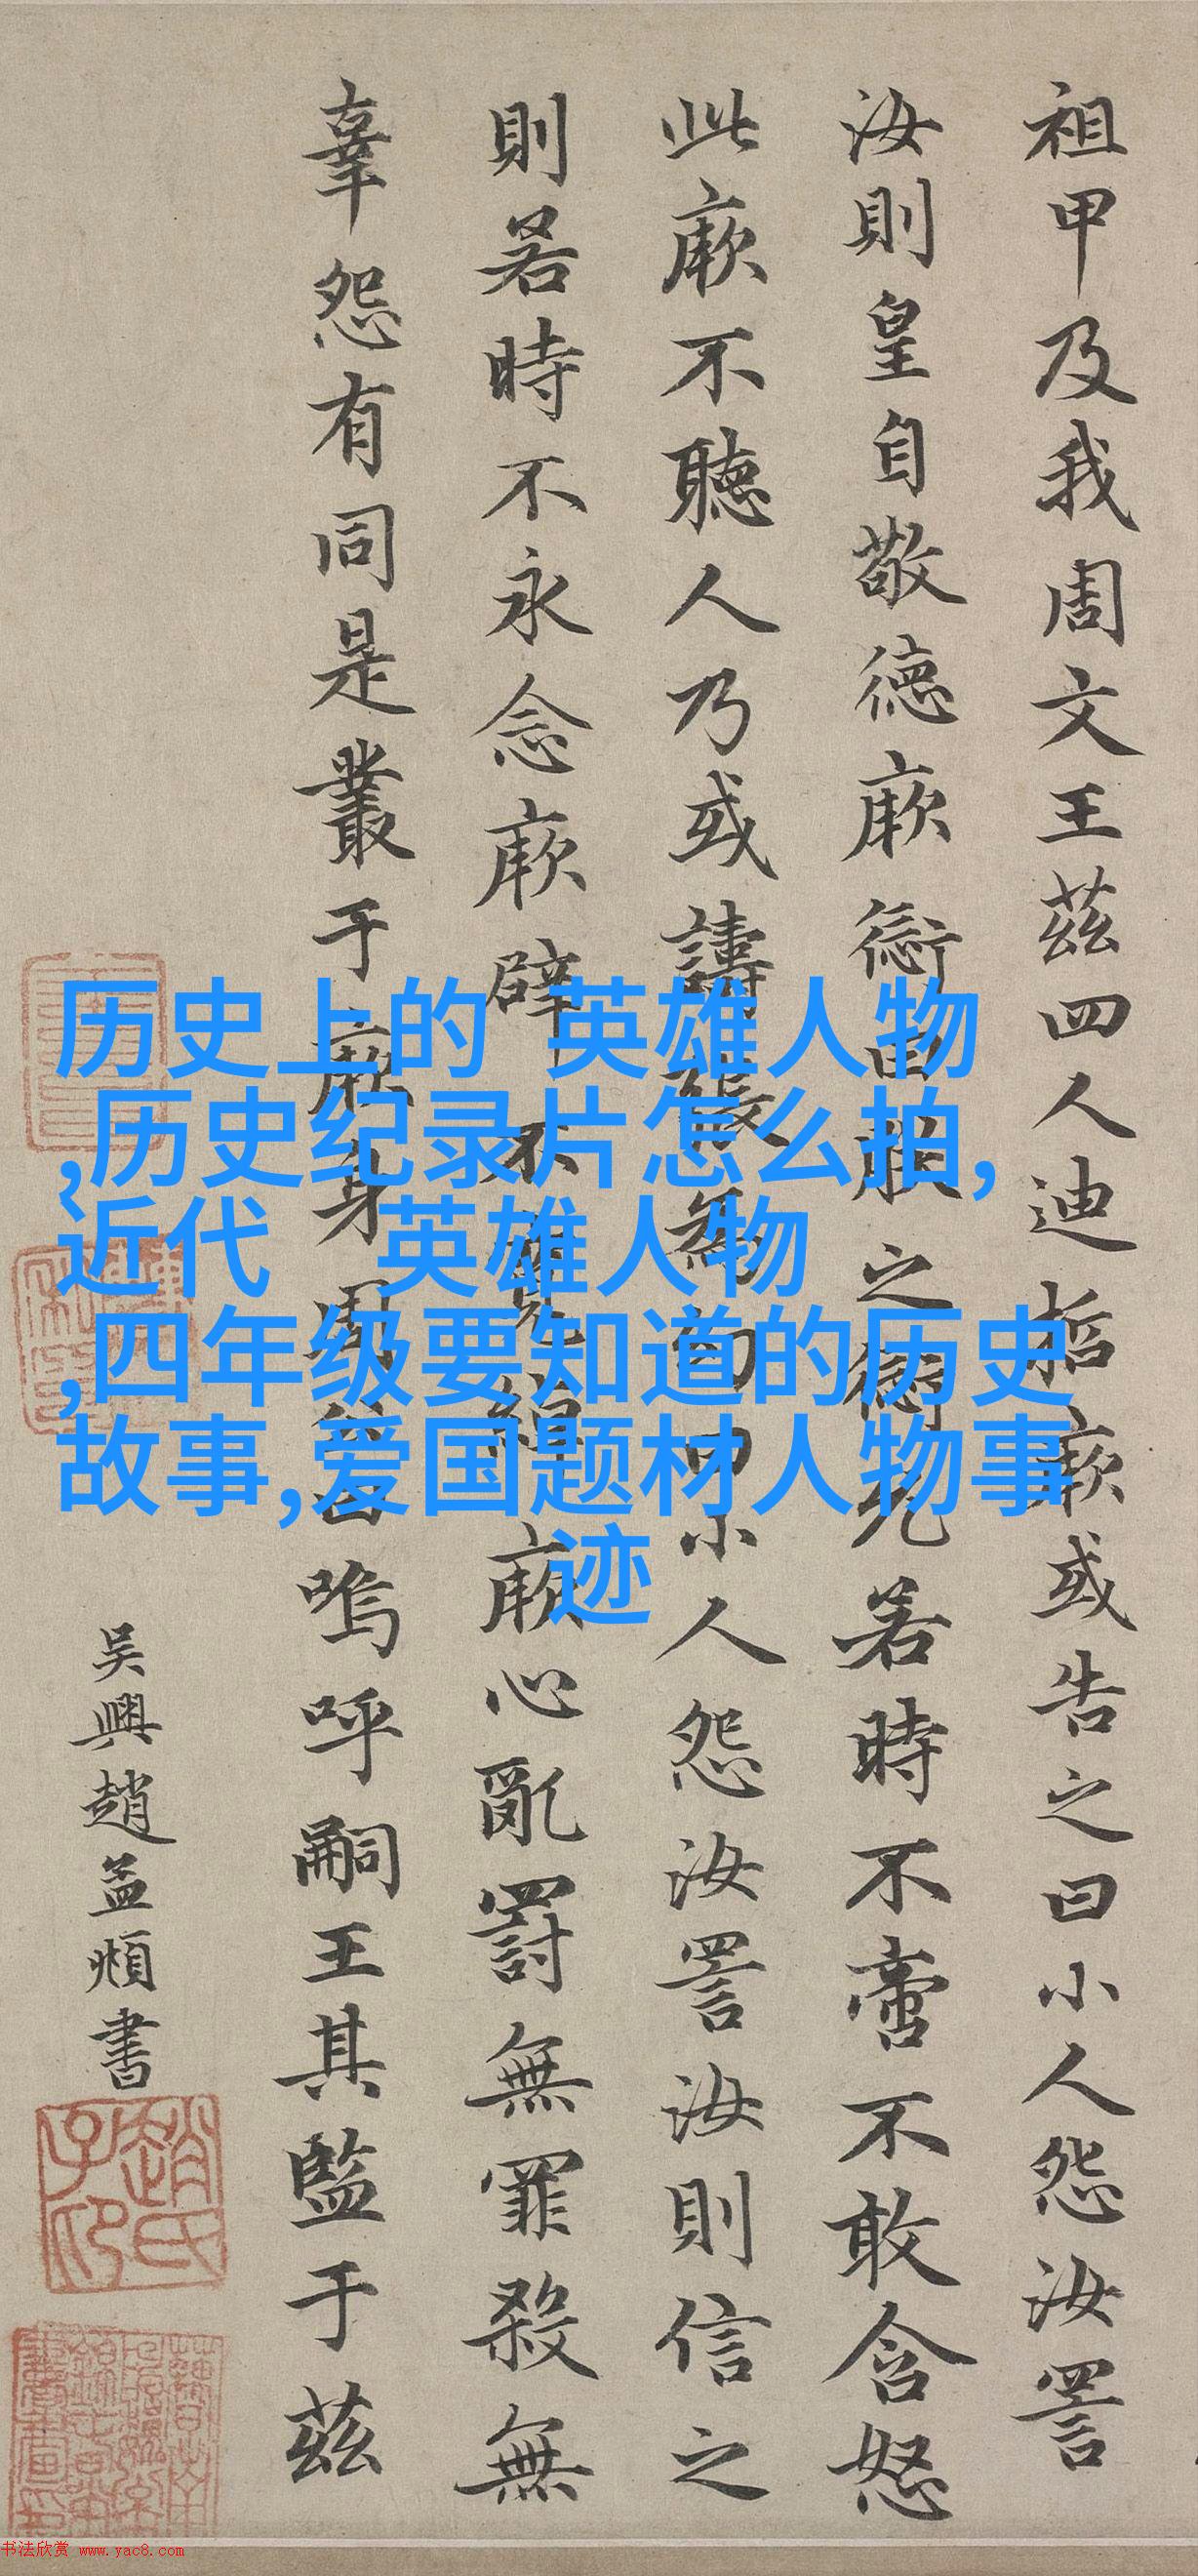 祖甲及我周文王茲四人迪哲厥或告之曰小人怨汝詈
汝則皇自敬德厥愆曰朕之愆允若時不啻不敢含怒
此厥不聽人乃或譸張為幻曰小人怨汝詈汝則信之
則若時不永念厥辟不寬綽厥心亂罰無罪殺無
辜怨有同是叢于厥身周公曰嗚呼嗣王其監于茲
吴興趙孟頫書
趙氏子印
历史上的 英雄人物
,历史纪录片怎么拍,
近代 英雄人物
,四年级要知道的历史
故事,爱国题材人物事
迹
书法欣赏 www.yac8.com